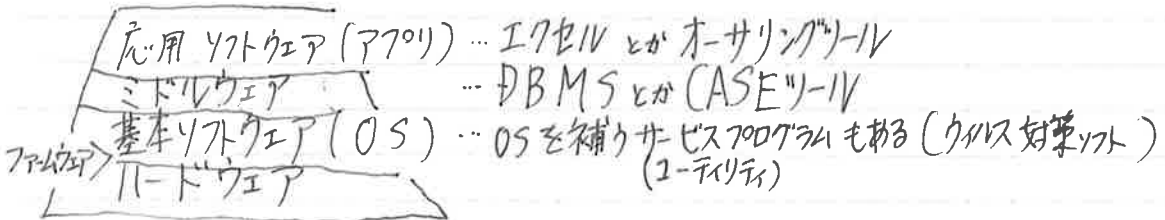 応用ソフトウェア(アプリ)…エクセルとかオーサリングツール
ミドルウェア …DBMSとかCASEツール
基本ソフトウェア(OS)…OSを補うサービスプログラムもある(ウイルス対策ソフト)
(ユーティリティ)
ファームウェア>
ハードウェア